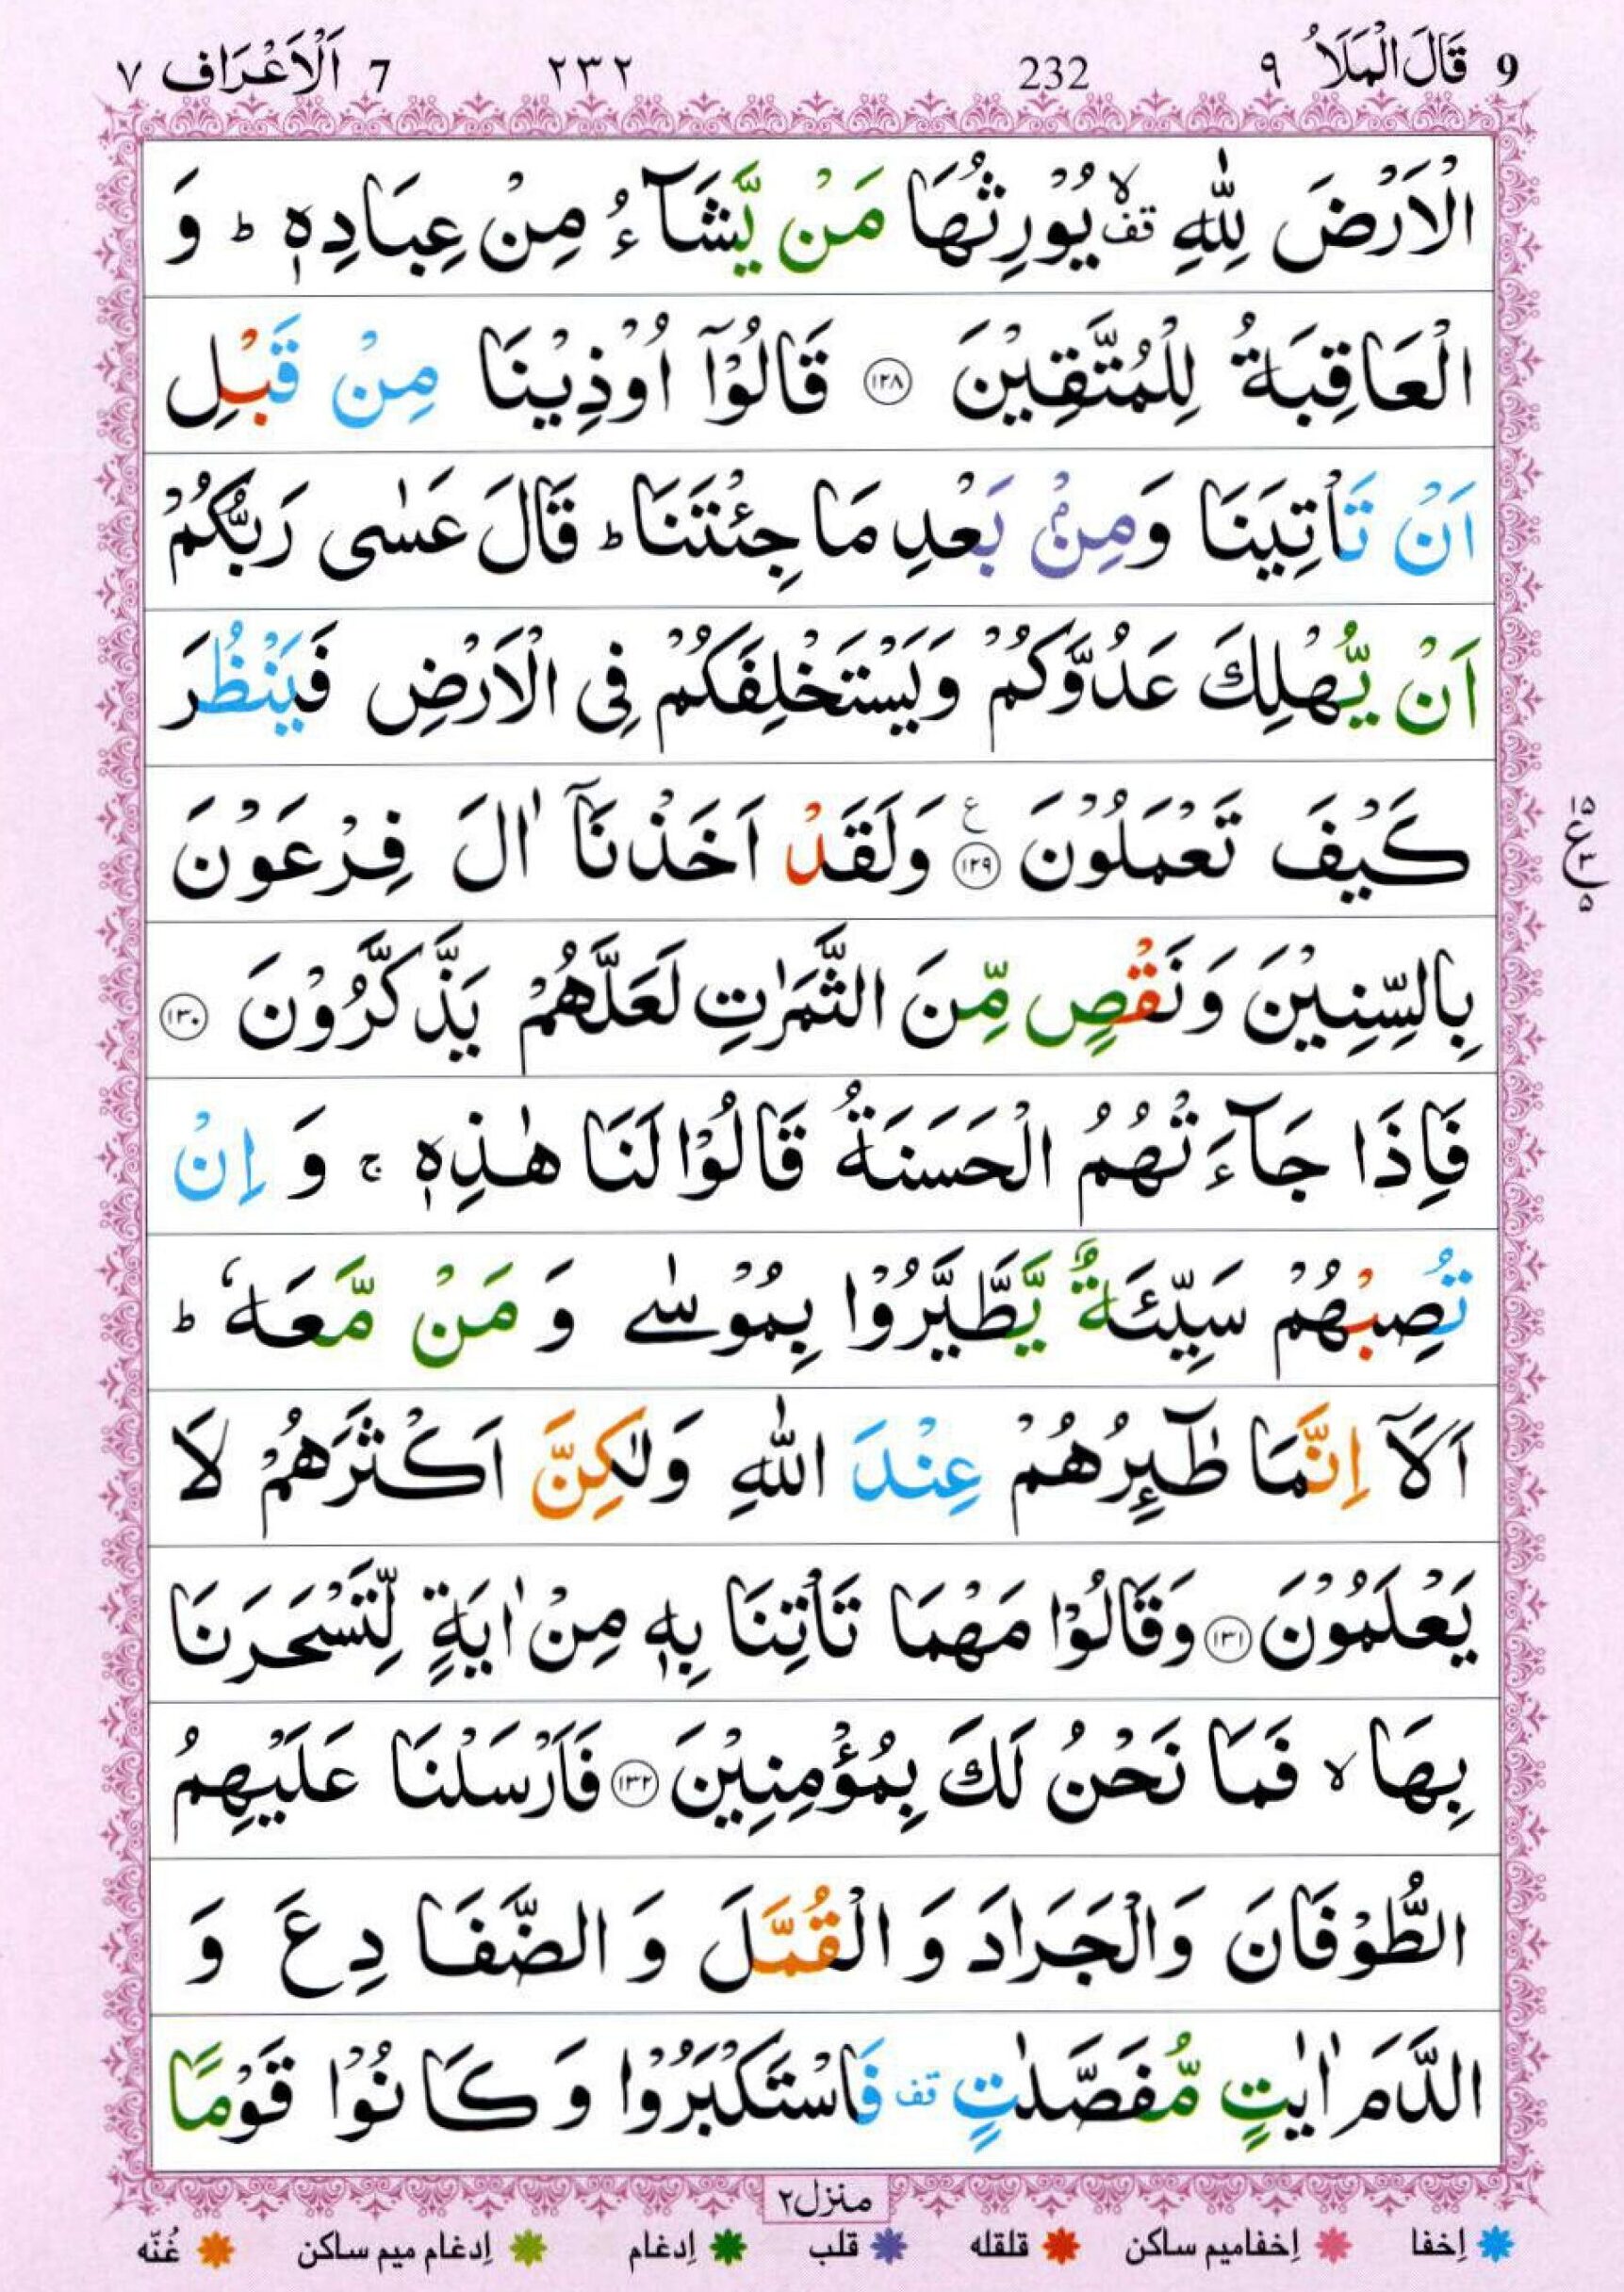 9 قَالَ الْمَلَاُ ٩ 232 ٢٣٢ 7 اَلْاَعْرَاف ٧
الْاَرْضَ لِلّٰهِ ۙقف يُوْرِثُهَا مَنْ يَّشَآءُ مِنْ عِبَادِهٖ ؕ وَ
الْعَاقِبَةُ لِلْمُتَّقِيْنَ ۝۱۲۸ قَالُوْۤا اُوْذِيْنَا مِنْ قَبْلِ
اَنْ تَاْتِيَنَا وَمِنْۢ بَعْدِ مَا جِئْتَنَا ؕ قَالَ عَسٰى رَبُّكُمْ
اَنْ يُّهْلِكَ عَدُوَّكُمْ وَيَسْتَخْلِفَكُمْ فِى الْاَرْضِ فَيَنْظُرَ
كَيْفَ تَعْمَلُوْنَ ۝۱۲۹ ع وَلَقَدْ اَخَذْنَاۤ اٰلَ فِرْعَوْنَ
۱۵ ع ۳ ۵
بِالسِّنِيْنَ وَنَقْصٍ مِّنَ الثَّمَرٰتِ لَعَلَّهُمْ يَذَّكَّرُوْنَ ۝۱۳۰
فَاِذَا جَآءَتْهُمُ الْحَسَنَةُ قَالُوْا لَنَا هٰذِهٖ ۚ وَ اِنْ
تُصِبْهُمْ سَيِّئَةٌ يَّطَّيَّرُوْا بِمُوْسٰى وَ مَنْ مَّعَهٗ ؕ
اَلَاۤ اِنَّمَا طٰٓئِرُهُمْ عِنْدَ اللّٰهِ وَلٰكِنَّ اَكْثَرَهُمْ لَا
يَعْلَمُوْنَ ۝۱۳۱ وَقَالُوْا مَهْمَا تَاْتِنَا بِهٖ مِنْ اٰيَةٍ لِّتَسْحَرَنَا
بِهَا ۙ فَمَا نَحْنُ لَكَ بِمُؤْمِنِيْنَ ۝۱۳۲ فَاَرْسَلْنَا عَلَيْهِمُ
الطُّوْفَانَ وَالْجَرَادَ وَ الْقُمَّلَ وَ الضَّفَادِعَ وَ
الدَّمَ اٰيٰتٍ مُّفَصَّلٰتٍ قف فَاسْتَكْبَرُوْا وَ كَانُوْا قَوْمًا
منزل٢
إخفا إخفامیم ساکن قلقله قلب إدغام إدغام میم ساکن غُنّه